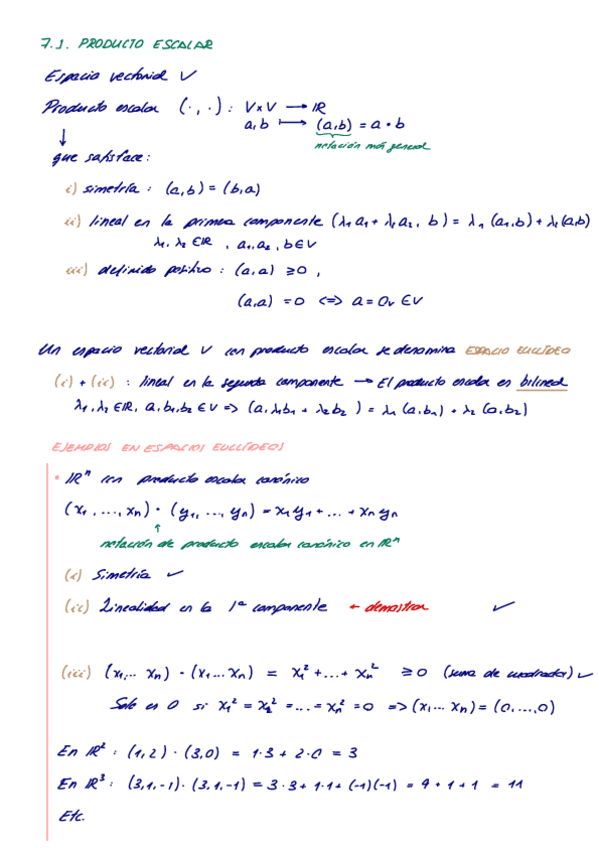 7.1. PRODUCTO ESCALAR
Espacio vectorial V
Producto escalar (·,·): V×V → IR
a,b ⟼ (a,b) = a · b
notación más general
↓
que satisface:
i) simetría: (a,b) = (b,a)
ii) lineal en la primera componente (λ₁a₁ + λ₂a₂, b) = λ₁(a₁,b) + λ₂(a₂b)
λ₁, λ₂ ∈ IR, a₁,a₂, b ∈ V
iii) definido positivo: (a,a) ≥ 0,
(a,a) = 0 <=> a = 0ᵥ ∈ V
Un espacio vectorial V con producto escalar se denomina ESPACIO EUCLÍDEO
(i) + (ii): lineal en la segunda componente → El producto escalar es bilineal
λ₁,λ₂ ∈ IR, a,b₁,b₂ ∈ V => (a, λ₁b₁ + λ₂b₂) = λ₁(a,b₁) + λ₂(a,b₂)
EJEMPLOS EN ESPACIOS EUCLÍDEOS
• IRⁿ con producto escalar canónico
(x₁, ..., xₙ) · (y₁, ..., yₙ) = x₁y₁ + ... + xₙyₙ
↑
notación de producto escalar canónico en IRⁿ
(i) Simetría ✓
(ii) Linealidad en la 1ª componente ← demostrar ✓
(iii) (x₁... xₙ) · (x₁... xₙ) = x₁² + ... + xₙ² ≥ 0 (suma de cuadrados) ✓
Solo es 0 si x₁² = x₂² = ... = xₙ² = 0 => (x₁... xₙ) = (0,...,0)
En IR²: (1,2) · (3,0) = 1·3 + 2·0 = 3
En IR³: (3,1,-1) · (3,1,-1) = 3·3 + 1·1 + (-1)(-1) = 9 + 1 + 1 = 11
Etc.